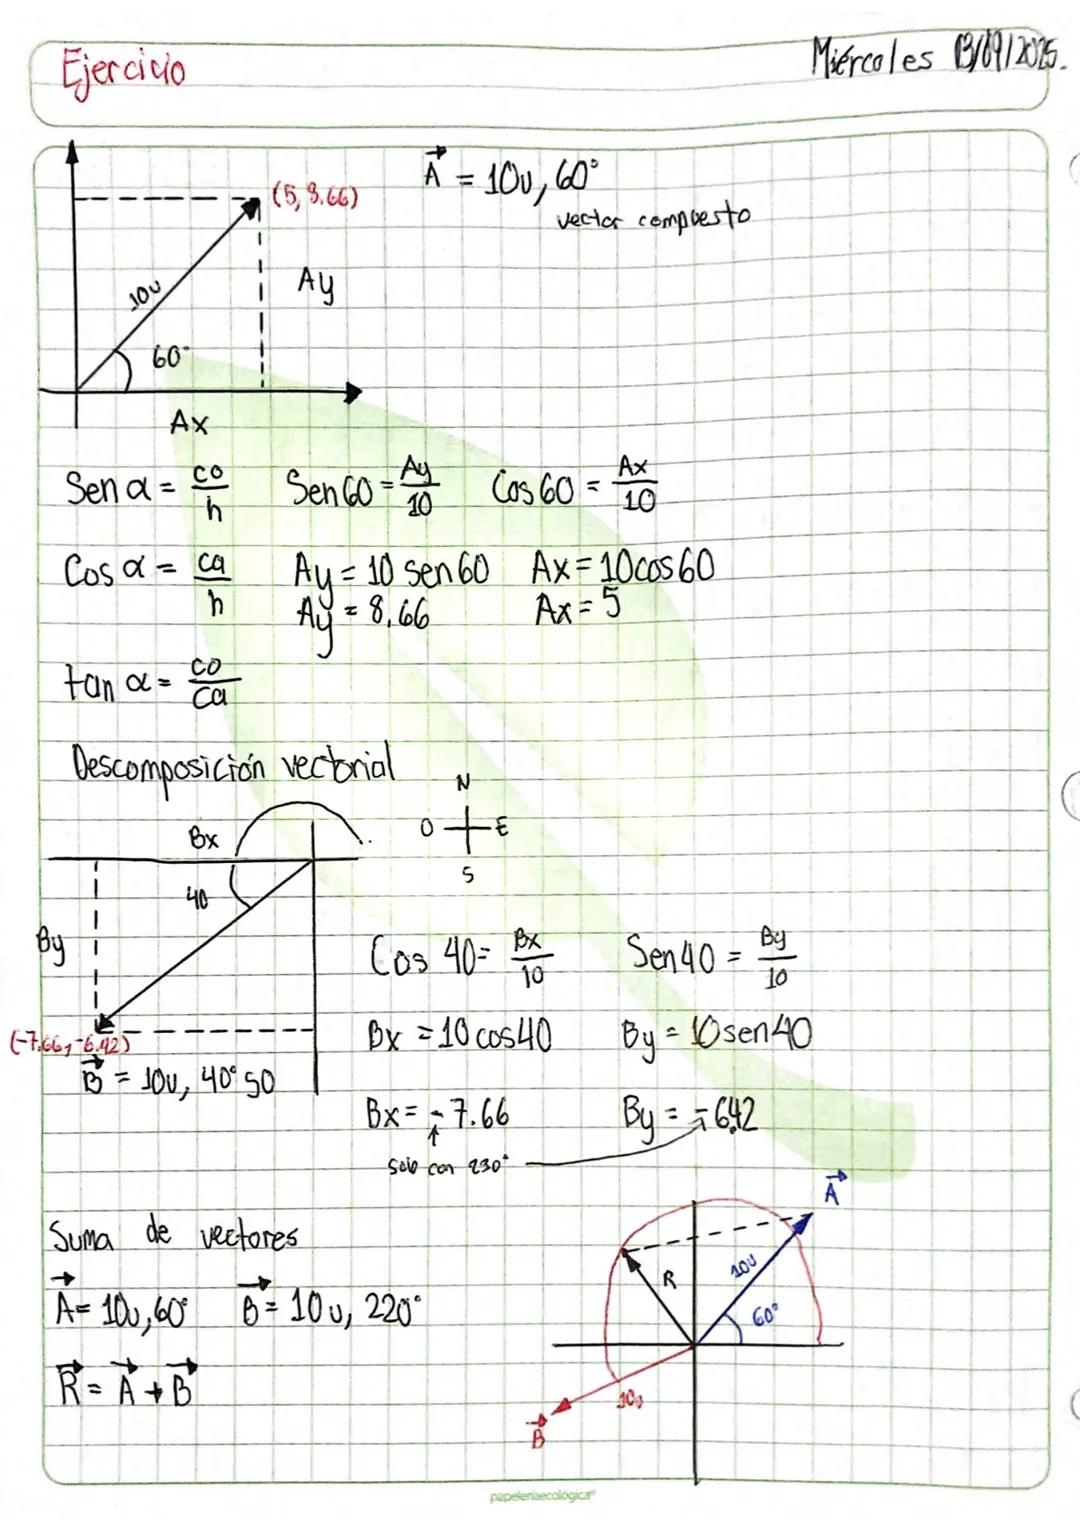 Ejercicio
Miércoles 13/09/2025.
A = 10u, 60°
vector compuesto
(5, 8.66)
10u
Ay
60°
Ax
Sen α = co/h Sen 60 = Ay/10 Cos 60 = Ax/10
Cos α = ca/h Ay = 10 sen 60 Ax = 10 cos 60
Ay = 8,66 Ax = 5
tan α = co/ca
Descomposición vectorial
N
O E
S
Bx
40
By
(-7.66, -6.42)
B = 10u, 40° SO
Cos 40 = Bx/10 Sen 40 = By/10
Bx = 10 cos 40 By = 10 sen 40
Bx = -7.66 By = -6,42
solo con 230°
Suma de vectores
A = 10u, 60° B = 10u, 220°
R = A + B
A
R
10u
60°
10u
B
papeleriaecológica